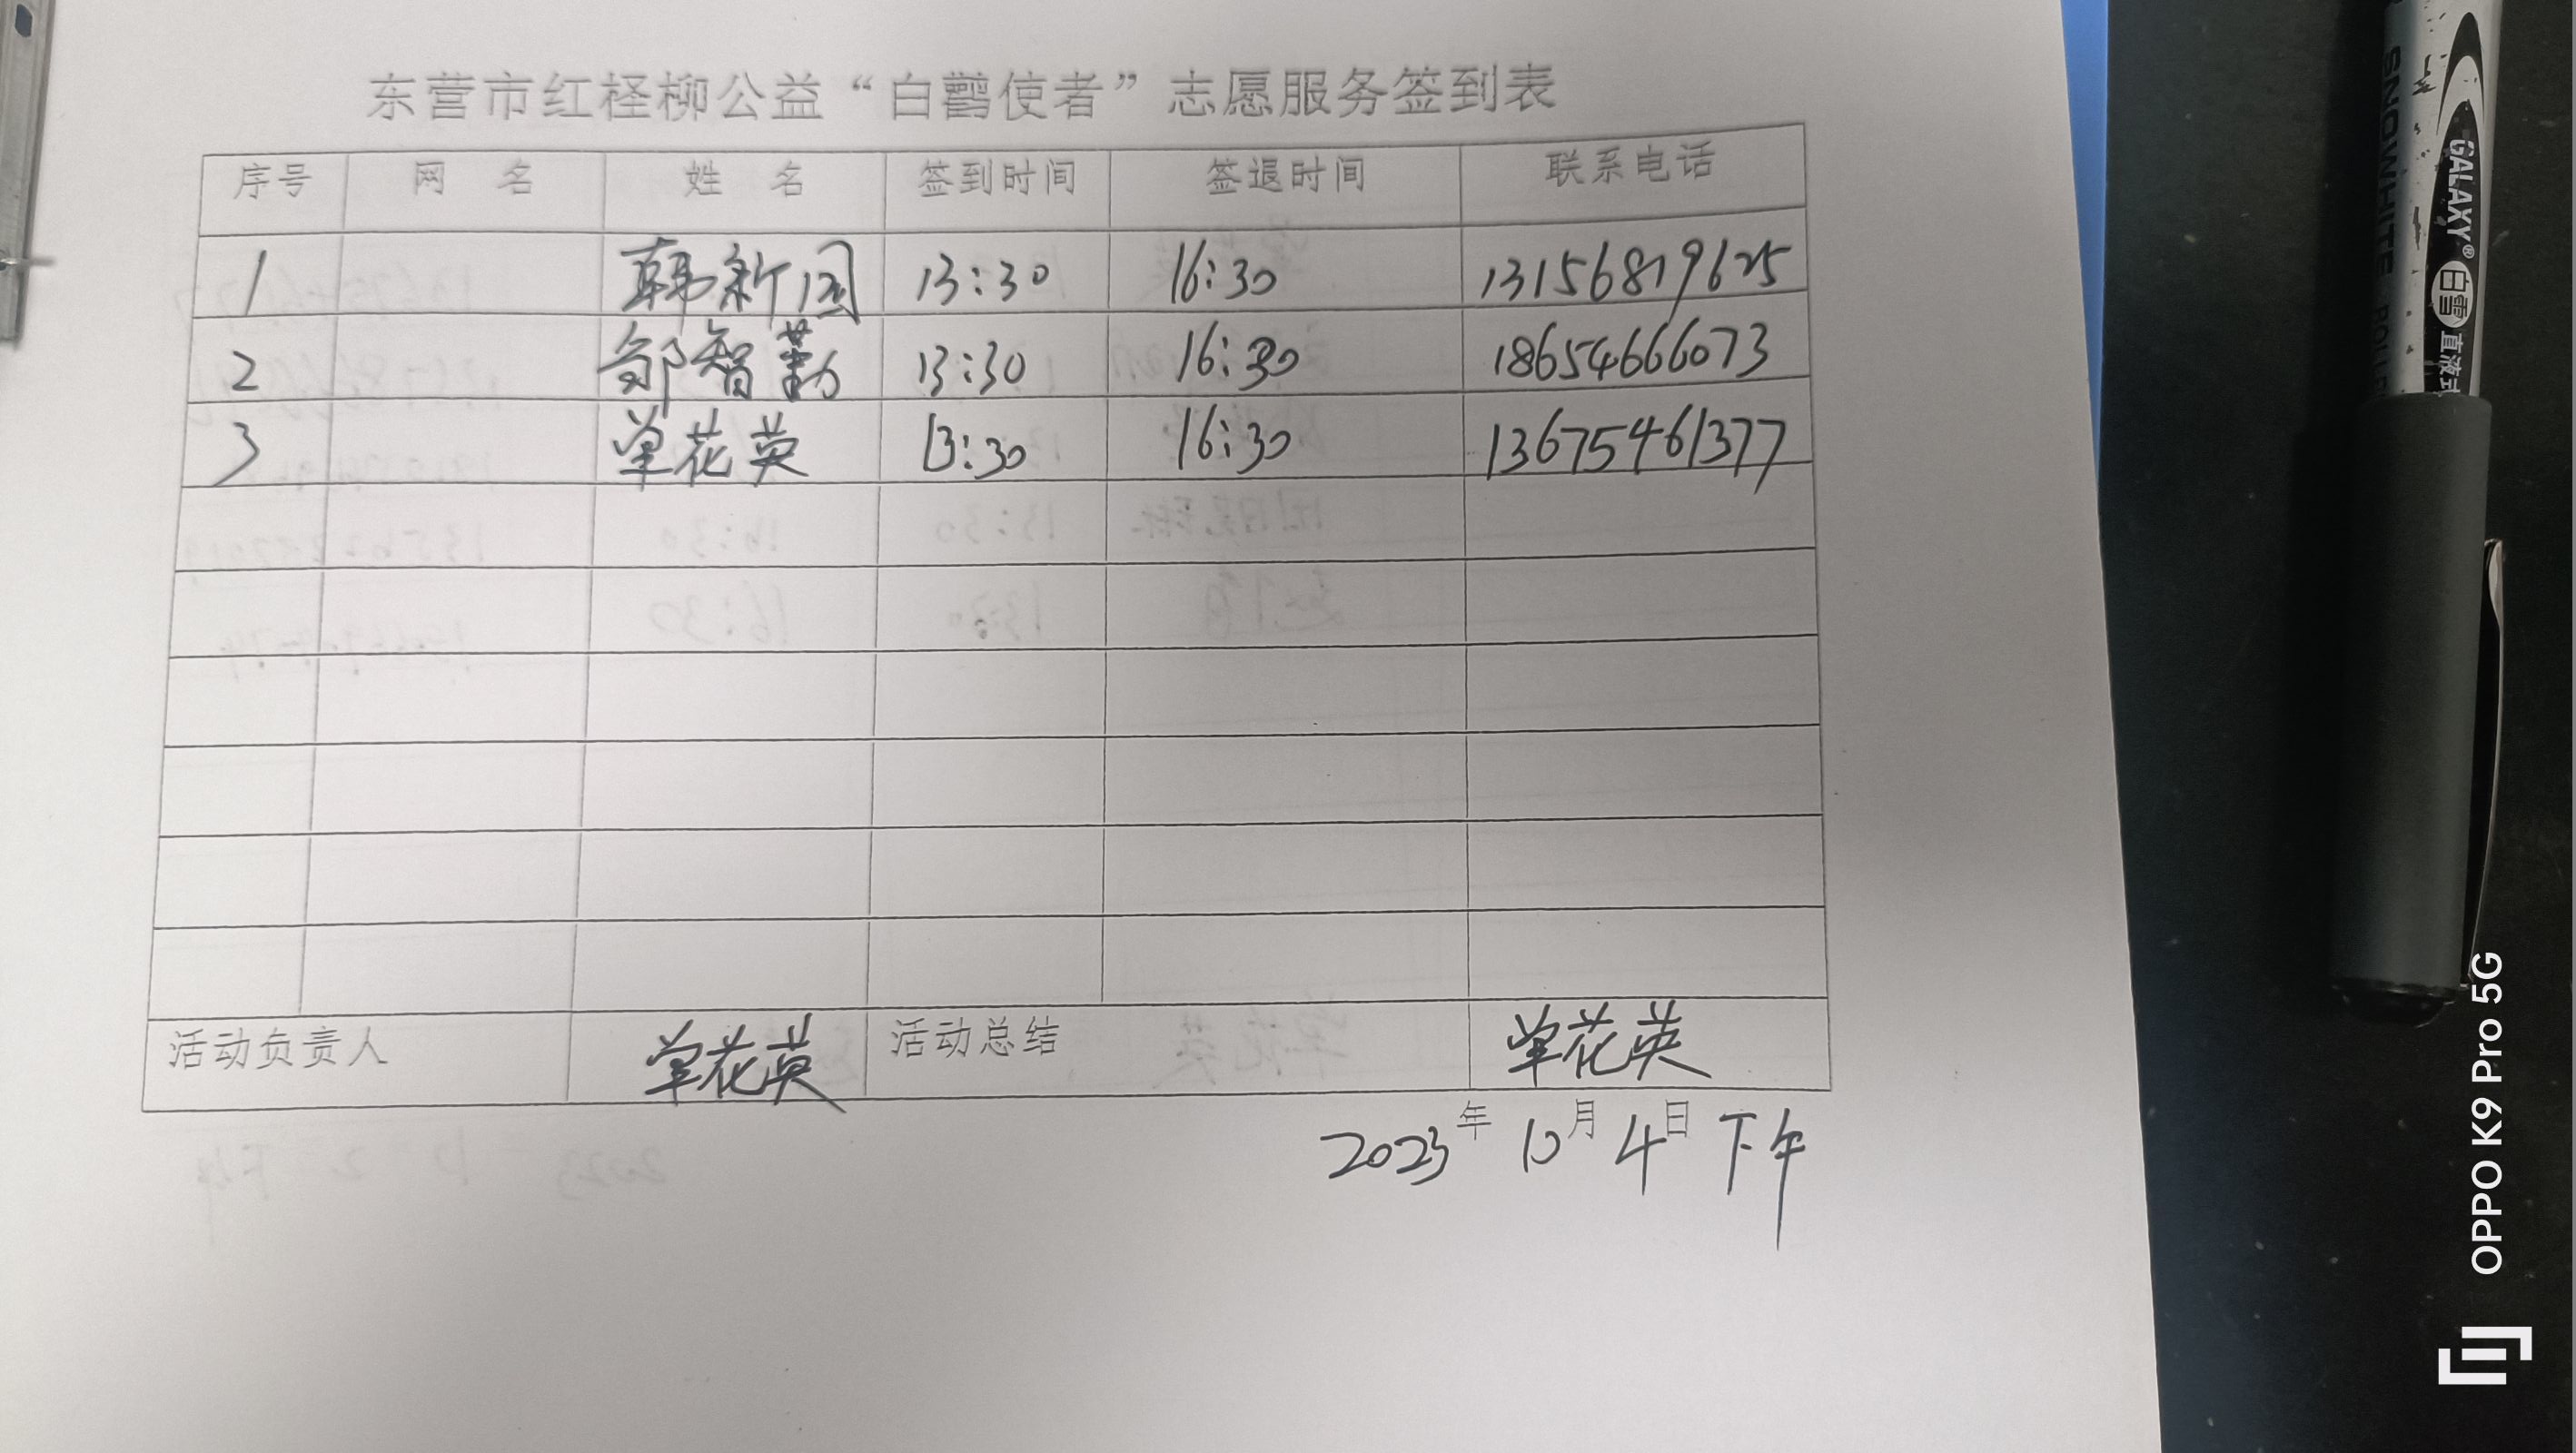 东营市红柽柳公益“白鹳使者”志愿服务签到表
序号 网 名 姓 名 签到时间 签退时间 联系电话
1 韩新国 13:30 16:30 13156819625
2 邹智勤 13:30 16:30 18654666073
3 单花英 13:30 16:30 13675461377
活动负责人 单花英 活动总结 单花英
2023年10月4日下午
GALAXY® 白雪 直液式
SNOWHITE
OPPO K9 Pro 5G